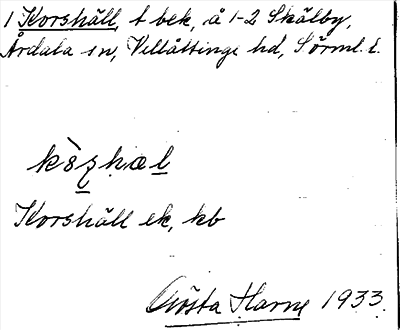 1 Korshäll, t bek, å 1-2 Skälby,
Årdala sn, Villåttinge hd, Sörml. l.
Korshäll ek, kb
Gösta Harne 1933.